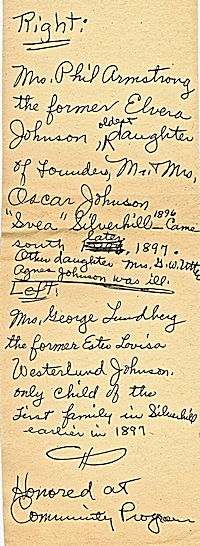 Right:
Mrs. Phil Armstrong
the former Elvera
Johnson, oldest daughter
of Founders, Mr. + Mrs.
Oscar Johnson
"Svea" Silverhill 1896 Came
south later, 1897.
Other daughter Mrs. G.W.
Agnes Johnson was ill.
Left:
Mrs. George Lundberg
the former Ester Lovisa
Westerlund Johnson.
only child of the
first family in Silverhill
earlier in 1897
Honored at
Community Program